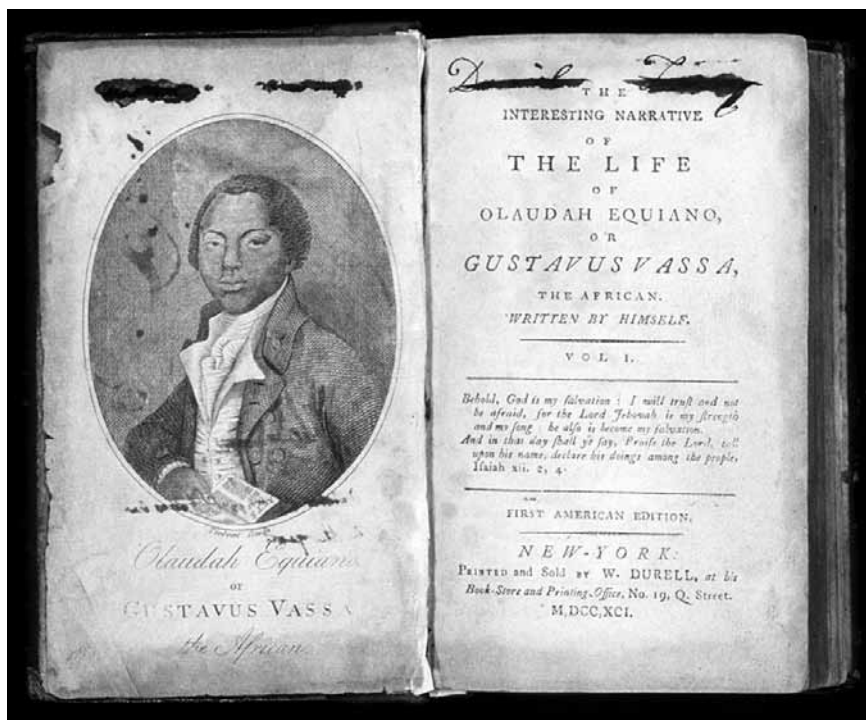 Olaudah Equiano
or
GUSTAVUS VASSA
the African
THE
INTERESTING NARRATIVE
OF
THE LIFE
OF
OLAUDAH EQUIANO,
OR
GUSTAVUS VASSA,
THE AFRICAN.
WRITTEN BY HIMSELF.
VOL I.
Behold, God is my ſalvation : I will truſt and not
be afraid, for the Lord Jehovah is my ſtrength
and my ſong : he alſo is become my ſalvation.
And in that day ſhall ye ſay, Praiſe the Lord, call
upon his name, declare his doings among the people,
Iſaiah xii. 2, 4.
FIRST AMERICAN EDITION.
NEW-YORK:
PRINTED and Sold BY W. DURELL, at his
Book-Store and Printing-Office, No. 19, Q. Street.
M,DCC,XCI.